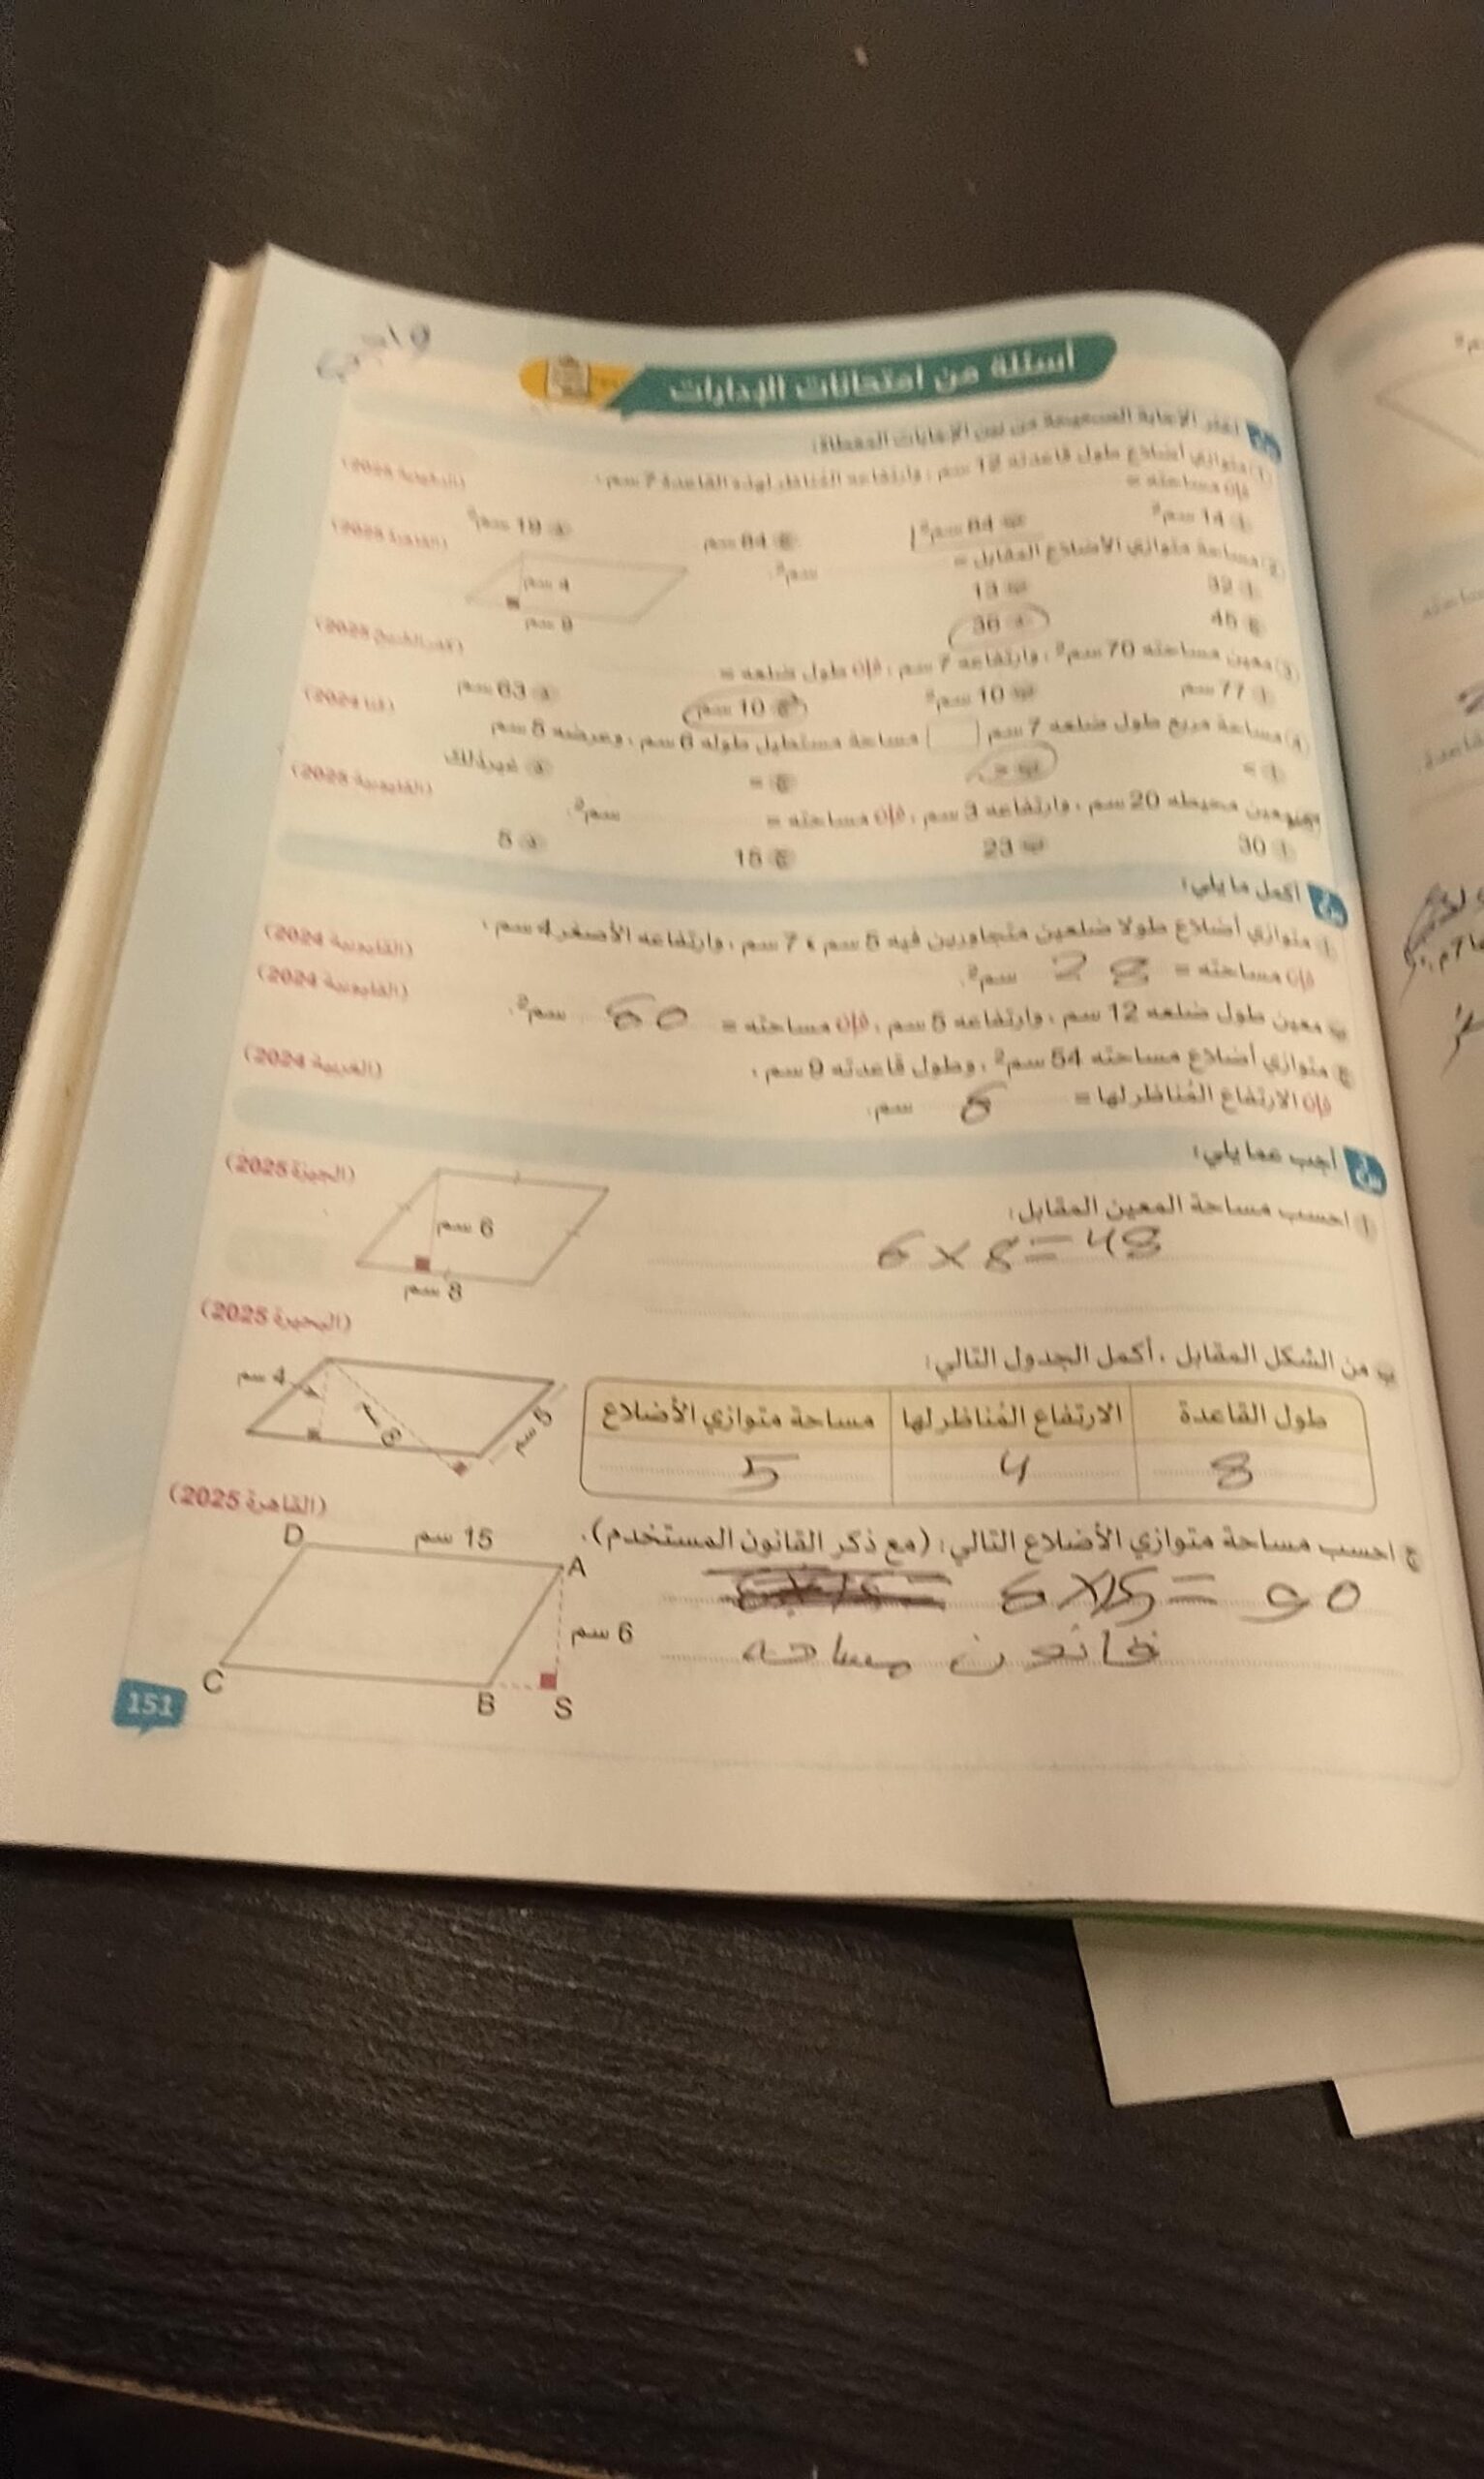 واجب
أسئلة من امتحانات الإدارات
اختر الإجابة الصحيحة من بين الإجابات المعطاة:
1 متوازي أضلاع طول قاعدته 12 سم، وارتفاعه المُناظر لهذه القاعدة 7 سم،
فإن مساحته =
أ 14 سم² ب 84 سم² ج 84 سم د 19 سم²
2 مساحة متوازي الأضلاع المقابل = سم². (القاهرة 2025)
أ 32 ب 13
ج 45 د 36
4 سم
9 سم
3 معين مساحته 70 سم²، وارتفاعه 7 سم، فإن طول ضلعه = (كفر الشيخ 2025)
أ 77 سم ب 10 سم² ج 10 سم د 63 سم
4 مساحة مربع طول ضلعه 7 سم مساحة مستطيل طوله 6 سم، وعرضه 5 سم (قنا 2024)
ج = د غير ذلك
معين محيطه 20 سم، وارتفاعه 3 سم، فإن مساحته = سم². (القليوبية 2025)
أ 30 ب 23 ج 15 د 5
س2 أكمل ما يلي:
أ متوازي أضلاع طولا ضلعين متجاورين فيه 5 سم، 7 سم، وارتفاعه الأصغر 4 سم، (القليوبية 2024)
فإن مساحته = 28 سم².
ب معين طول ضلعه 12 سم، وارتفاعه 5 سم، فإن مساحته = 60 سم². (القليوبية 2024)
ج متوازي أضلاع مساحته 54 سم²، وطول قاعدته 9 سم، (الغربية 2024)
فإن الارتفاع المُناظر لها = 6 سم.
س3 أجب عما يلي:
أ احسب مساحة المعين المقابل: (الجيزة 2025)
6 × 8 = 48
6 سم
8 سم
ب من الشكل المقابل، أكمل الجدول التالي: (البحيرة 2025)
طول القاعدة الارتفاع المُناظر لها مساحة متوازي الأضلاع
8 4 5
4 سم
5 سم
ج احسب مساحة متوازي الأضلاع التالي: (مع ذكر القانون المستخدم). (القاهرة 2025)
6 × 15 = 90
قانون مساحه
D 15 سم A
6 سم
C B S
151